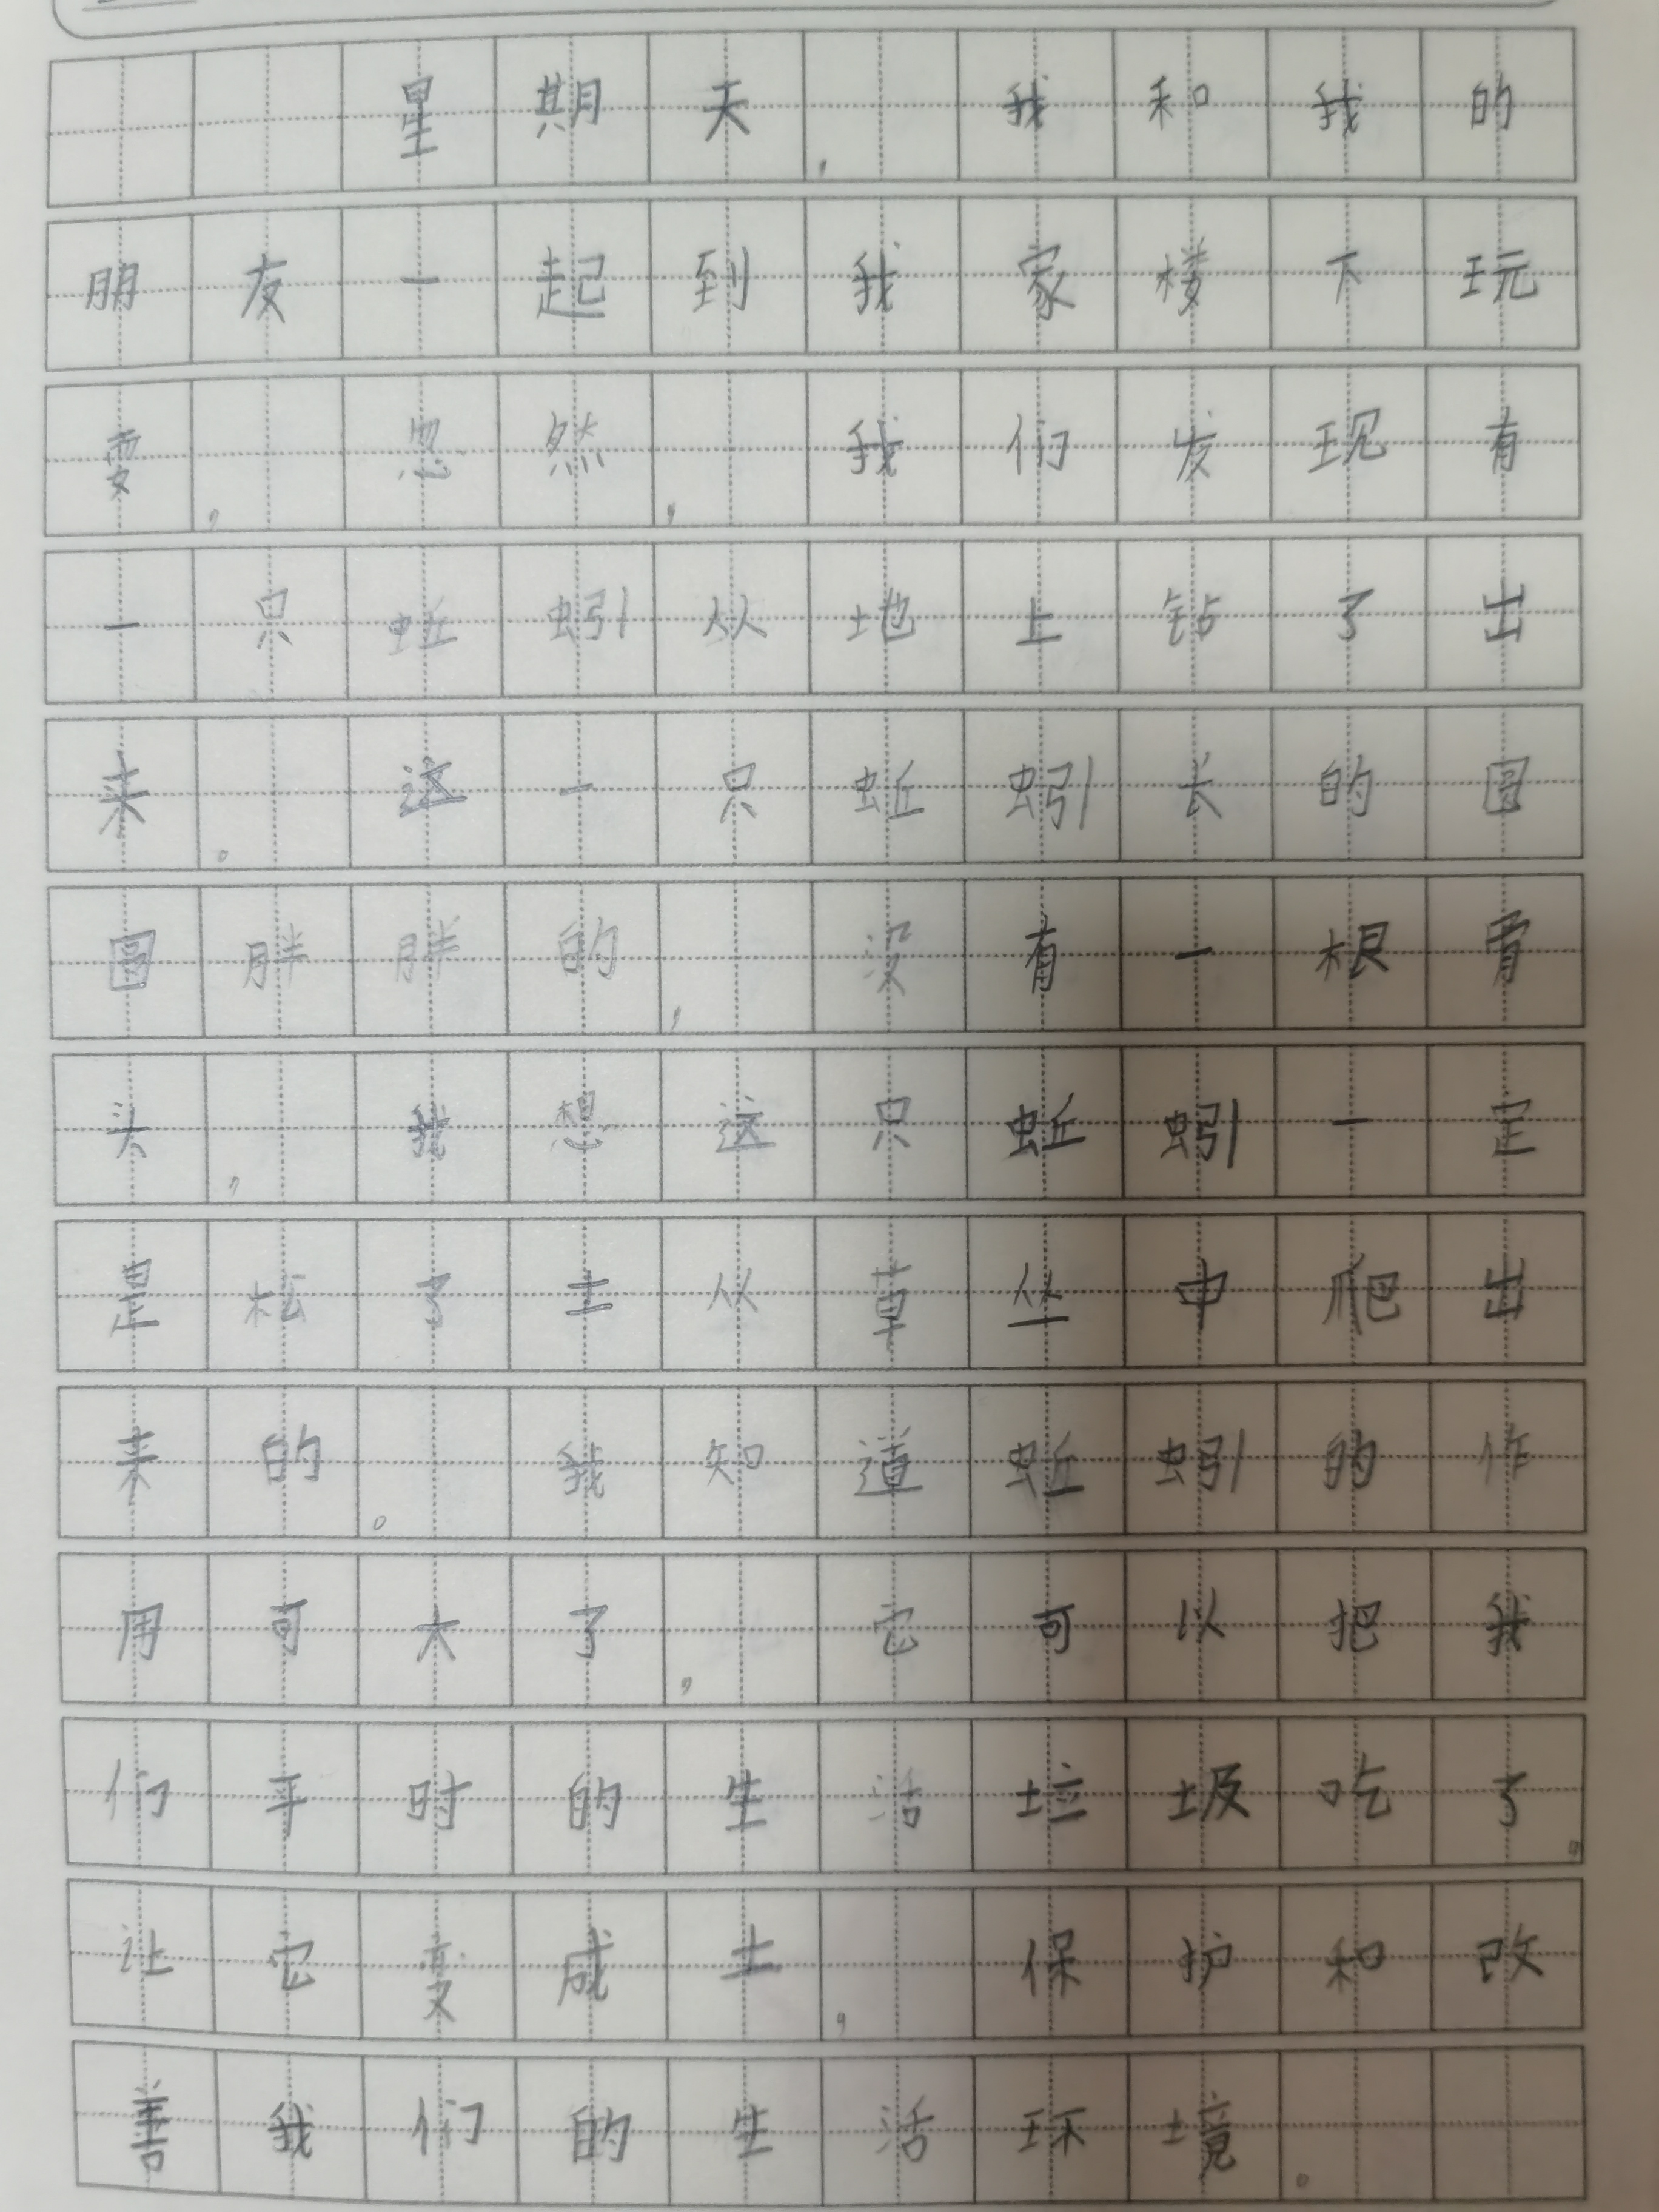 星期天，我和我的
朋友一起到我家楼下玩
耍，忽然，我们发现有
一只蚯蚓从地上钻了出
来。这一只蚯蚓长的圆
圆胖胖的，没有一根骨
头，我想这只蚯蚓一定
是松了土从草丛中爬出
来的。我知道蚯蚓的作
用可大了，它可以把我
们平时的生活垃圾吃了，
让它变成土，保护和改
善我们的生活环境。